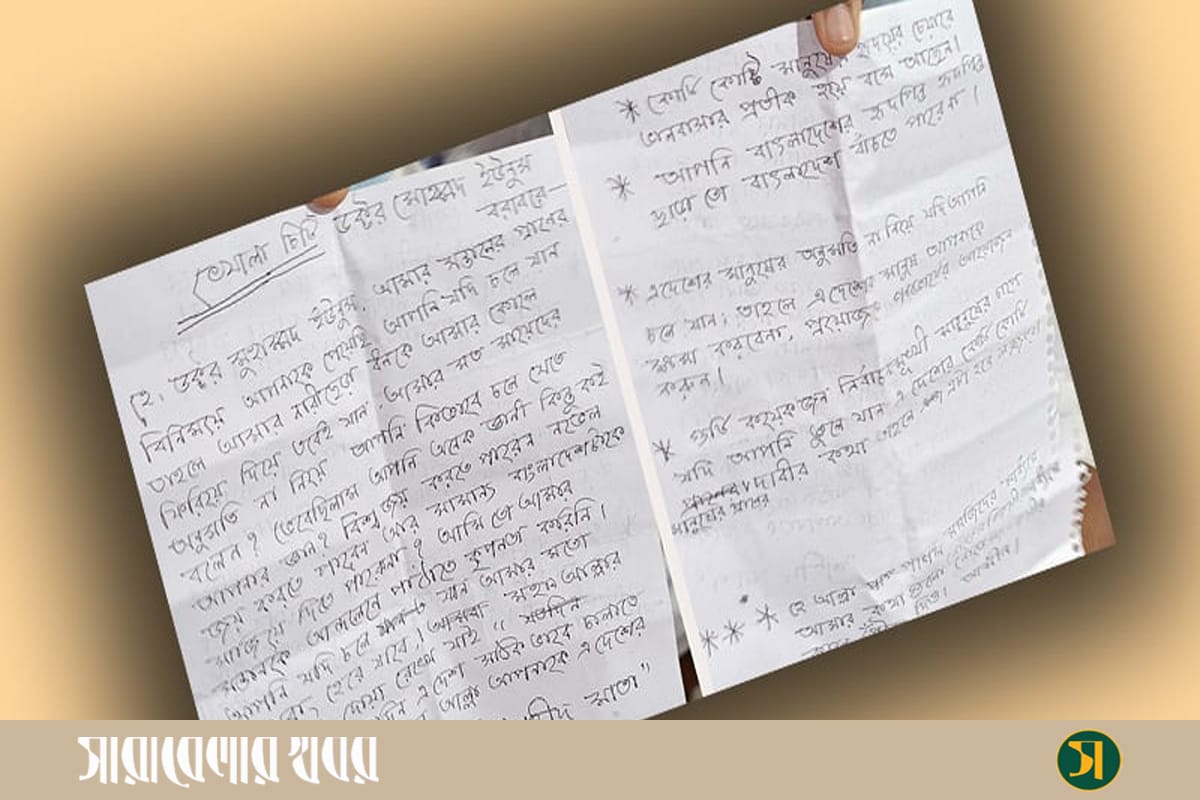 খোলা চিঠি ডক্টর মোহাম্মদ ইউনুস
বরাবরে—
হে, ডক্টর মুহাম্মদ ইউনুস, আমার সন্তানের প্রাণের
বিনিময়ে আপনাকে পেয়েছি আপনি যদি চলে যান
তাহলে আমার নারীছেরা ধনকে আমার কোলে
ফিরিয়ে দিয়ে তবেই যান আমার মত মায়েদের
অনুমতি না নিয়ে আপনি কিভাবে চলে যেতে
বলেন? ভেবেছিলাম আপনি অনেক জ্ঞানী কিন্তু কই
আপনার জ্ঞান? বিশ্ব জয় করতে পারেন নভেল
জয় করতে পারেন আর সামান্য বাংলাদেশটাকে
সাজিয়ে দিতে পারেননা? আমি তো আমার
সন্তানকে আন্দোলনে পাঠাতে কৃপনতা করিনি।
আপনি যদি চলে যান আমার মতো
হেরে যাবে। আমরা মহান আল্লাহর
দোয়া রেখে যাই " যতদিন
এ দেশ সঠিক ভাবে চালাতে
আল্লা আপনাকে এ দেশের
মাতা "
* কোটি কোটি মানুষের হৃদয়ের চেয়ারে
ভালবাসার প্রতীক হয়ে বসে আছেন।
* আপনি বাংলাদেশের হৃদপিন্ড হৃদপিন্ড
ছাড়া তো বাংলাদেশ বাঁচতে পারেনা।
* এদেশের মানুষের অনুমতি না নিয়ে যদি আপনি
চলে যান, তাহলে এ দেশের মানুষ আপনাকে
ক্ষমা করবেনা, প্রয়োজনে গনভোটের আয়োজন
করুন।
* গুটি কয়েকজন নির্বাচনমুখী মানুষের চাপে
যদি আপনি ভুলে যান এ দেশের কোটি কোটি
মানুষের প্রাণের দাবীর কথা তাহলে এটা হবে
*** হে আল্লা
আমার কথা গুলো
আমীন।
সারাবেলার খবর
স